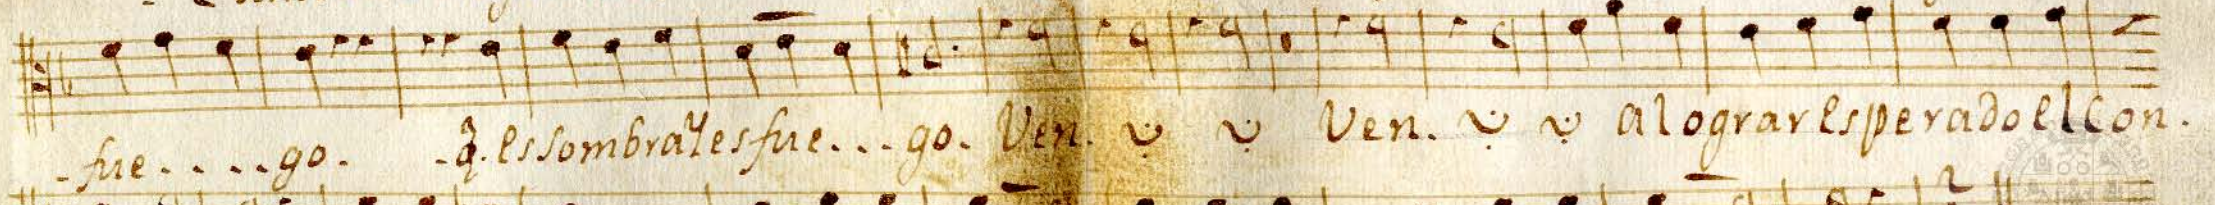 -fue.....go. -q̃. es sombra Y es fue...go. Ven. Ven. al ograr esperado el Con.